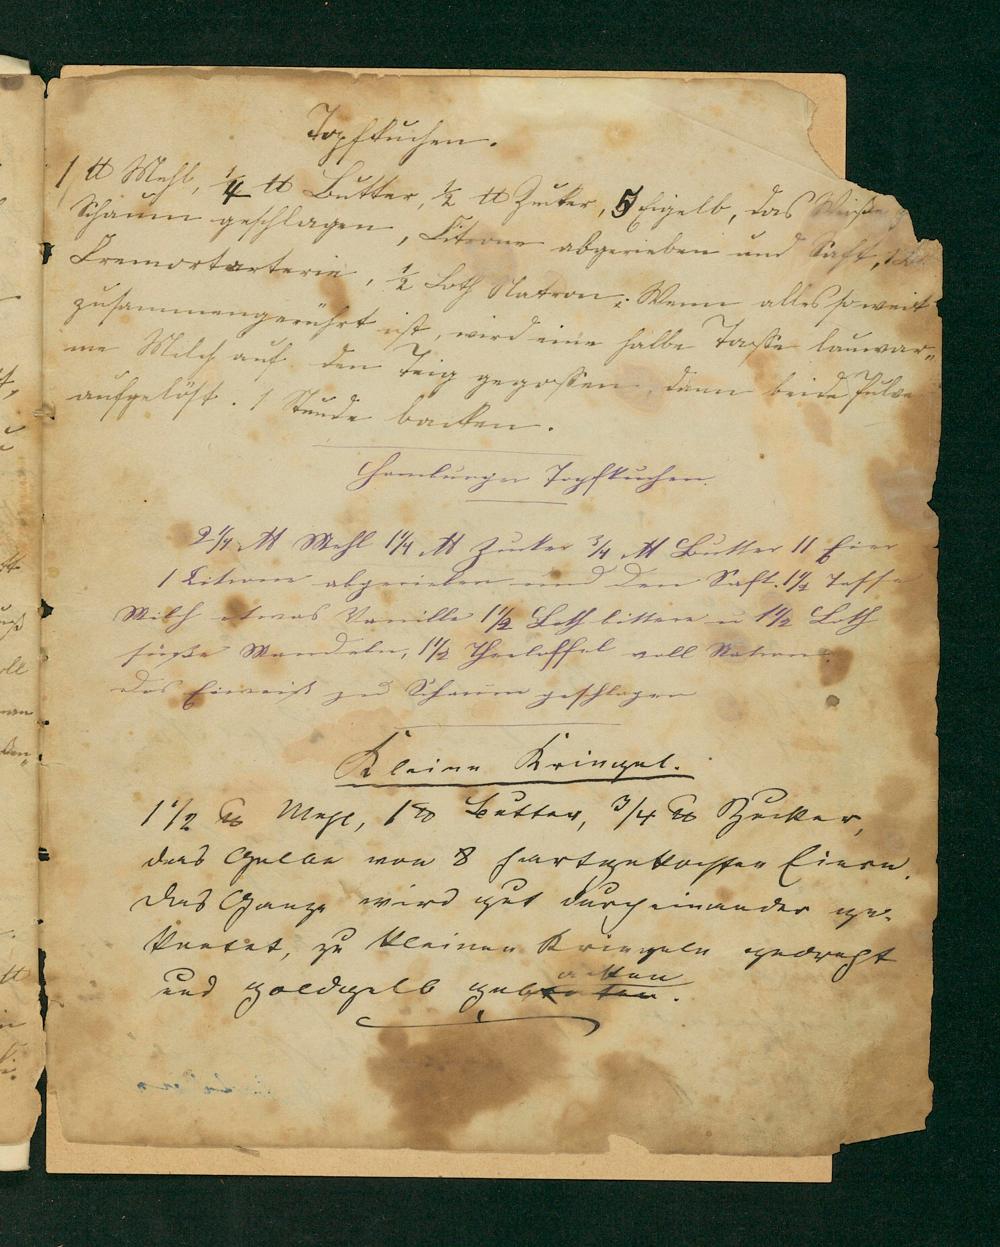 Topfkuchen.
1 ℔ Mehl, 1/4 ℔ Butter, 1/2 ℔ Zucker, 5 Eigelb, das Weiße
Schaum geschlagen, Citrone abgerieben und Saft, 1
Cremortarterie, 1/2 Loth Natron. Wenn alles soweit
zusammengerührt ist, wird eine halbe Tasse lauwar-
me Milch auf den Teig gegossen, dann beide Pulve
aufgelöst. 1 Stunde backen.
Hamburger Topfkuchen.
2 1/4 ℔ Mehl 1 1/4 ℔ Zucker 3/4 ℔ Butter 11 Eier
1 Citrone abgerieben und den Saft. 1 1/2 Tasse
Milch etwas Vanille 1 1/2 Loth bittere u 1 1/2 Loth
süße Mandeln, 1 1/2 Theelöffel voll Natron.
das Eiweiß zu Schaum geschlagen
Kleine Kringel.
1 1/2 ℔ Mehl, 1 ℔ Butter, 3/4 ℔ Zucker,
das Gelbe von 8 hartgekochten Eiern.
Das Ganze wird gut durcheinander ge-
knetet, zu kleinen Kringeln gedreht
und goldgelb gebacken.